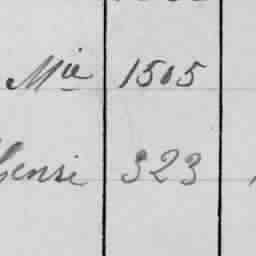 Mie 1505
Henri 323